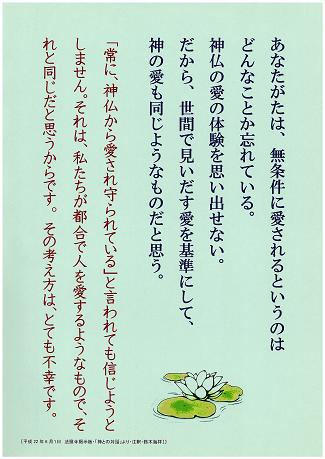 あなたがたは、無条件に愛されるというのは
どんなことか忘れている。
神仏の愛の体験を思い出せない。
だから、世間で見いだす愛を基準にして、
神の愛も同じようなものだと思う。
「常に、神仏から愛され守られている」と言われても信じようと
しません。それは、私たちが都合で人を愛するようなもので、そ
れと同じだと思うからです。その考え方は、とても不幸です。